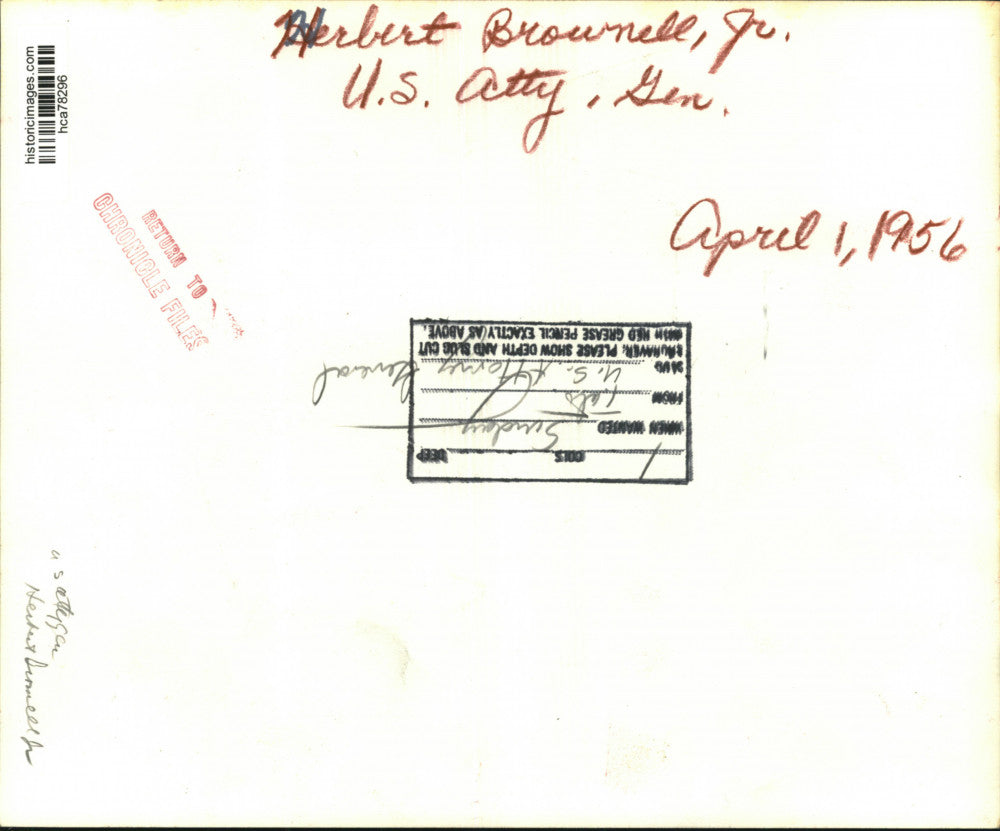 Herbert Brownell, Jr.
U.S. Atty, Gen.
April 1, 1956
historicimages.com
hca78296
RETURN TO
CHRONICLE FILES
COLS DEEP
WHEN WANTED Sunday
FROM
SLUG U.S. Attorney General
ENGRAVER, PLEASE SHOW DEPTH AND SLUG CUT
WITH RED GREASE PENCIL EXACTLY AS ABOVE.
u s atty gen
Herbert Brownell Jr